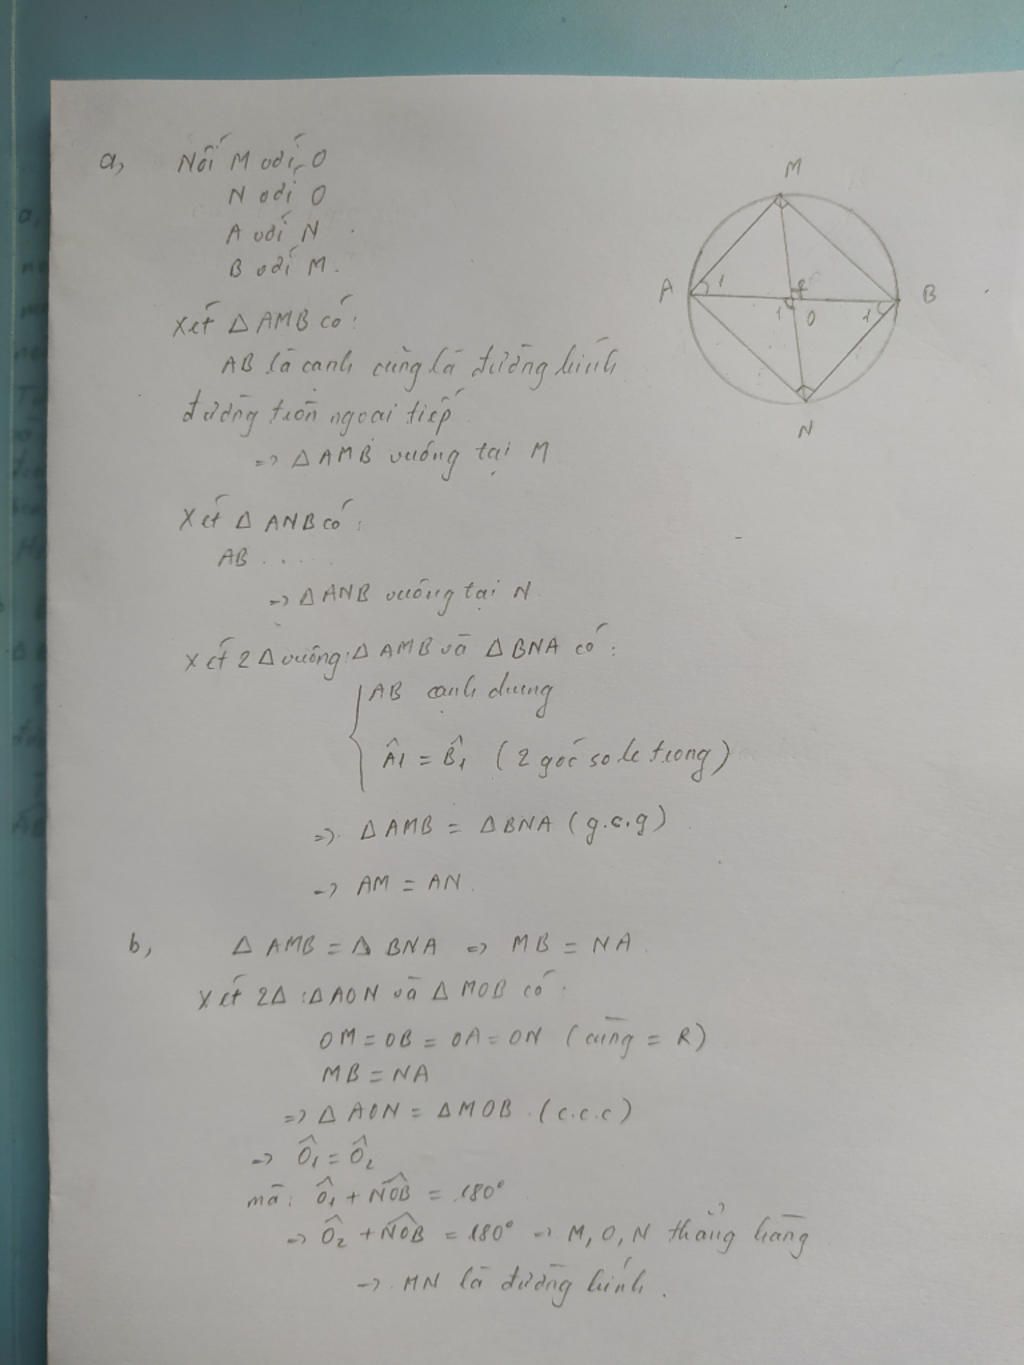 a, Nối M với O
N với O
A với N
B với M.
Xét Δ AMB có:
AB là cạnh cũng là đường kính
đường tròn ngoại tiếp
=> Δ AMB vuông tại M
Xét Δ ANB có:
AB ....
=> Δ ANB vuông tại N
Xét 2 Δ vuông: Δ AMB và Δ BNA có:
AB cạnh chung
Â1 = B̂1 (2 góc so le trong)
=> Δ AMB = Δ BNA (g.c.g)
=> AM = AN.
b, Δ AMB = Δ BNA => MB = NA.
Xét 2Δ: Δ AON và Δ MOB có:
OM = OB = OA = ON (cùng = R)
MB = NA
=> Δ AON = Δ MOB (c.c.c)
=> Ô1 = Ô2
mà: Ô1 + NÔB = 180°
=> Ô2 + NÔB = 180° => M, O, N thẳng hàng
=> MN là đường kính.
M
A 1
2
B
1 O 1
N